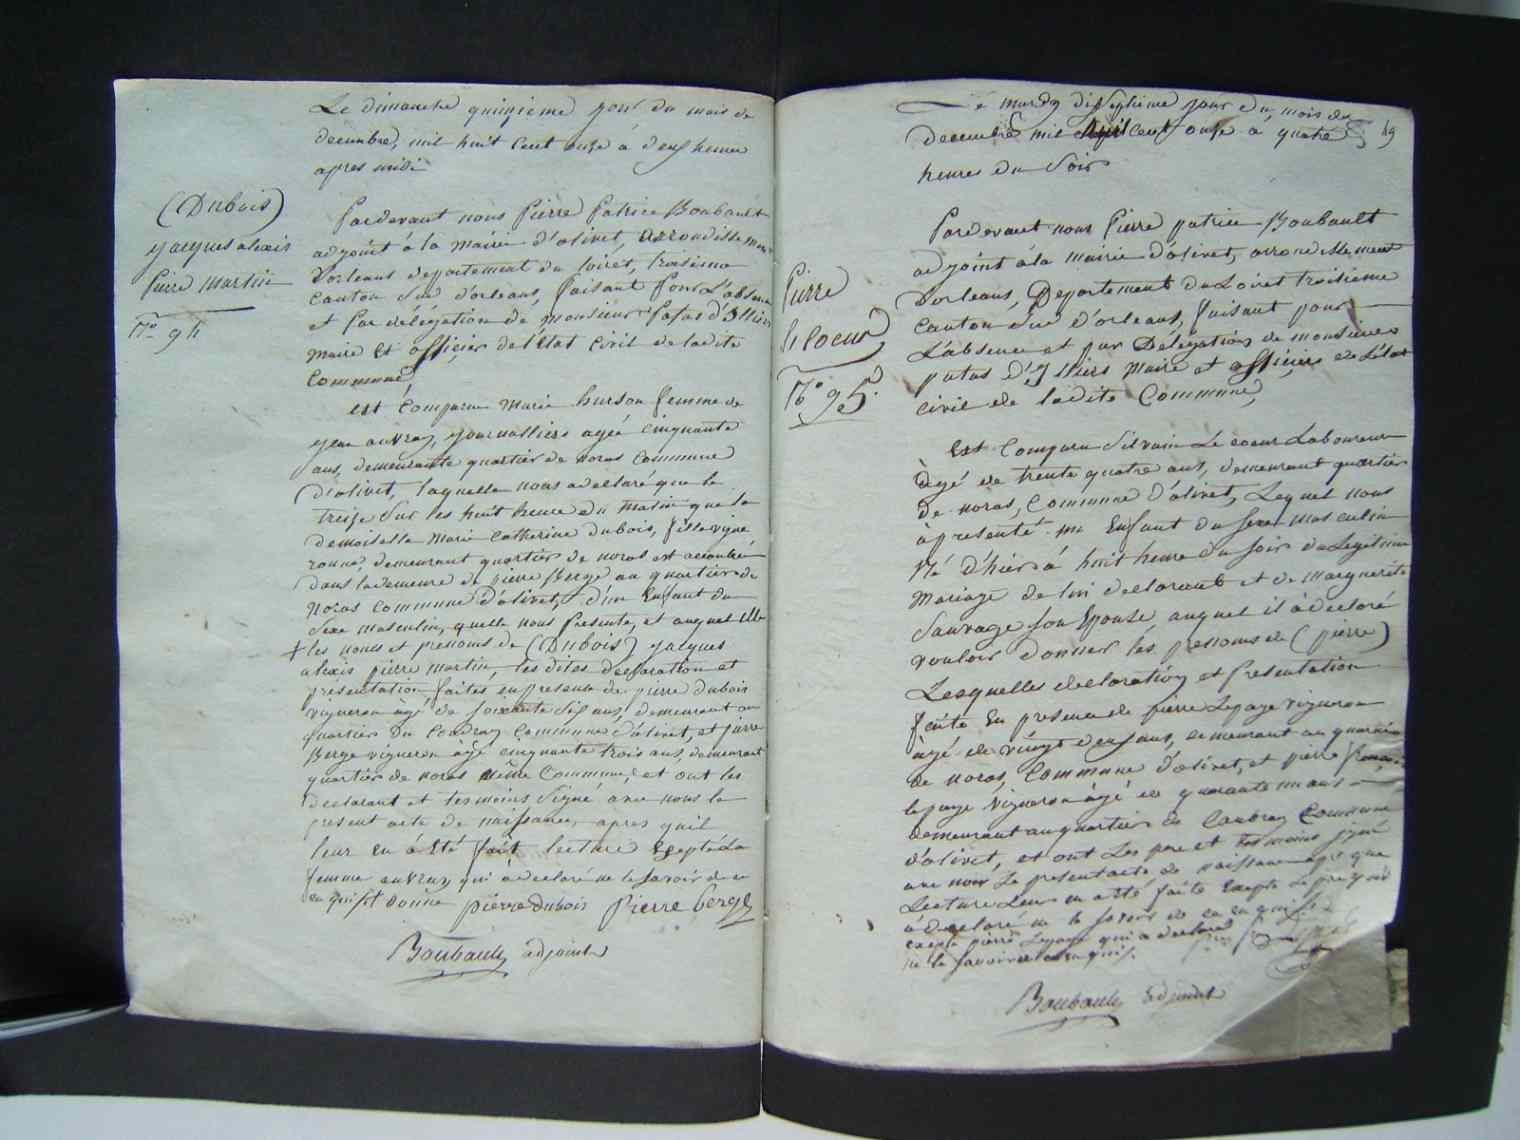 Le dimanche quinzieme jour du mois de
decembre, mil huit cent onze à deux heures
apres midi
(Dubois)
jacques alexis
pierre martin
N.o 94
Pardevant nous Pierre Patrice Boubault
adjoint à la mairie d'olivet, arrondissement
Dorleans departement du loiret, troisieme
canton sud d'orleans, faisant pour l'absence
et par délégation de monsieur patas d'Illiers
maire et officier de l'état civil de ladite
Commune
est Comparu marie hurson femme de
jean auvray, journalliers agée cinquante
ans, demeurante quartier de noras commune
d'olivet, laquelle nous a declaré que le
treize sur les huit heure du matin que la
demoiselle marie catherine dubois, fille vigne
ronne, demeurant quartier de noras est accouchée
dans la demeure de pierre Bergé au quartier de
noras commune d'olivet, d'un Enfant du
sexe masculin, quelle nous présente, et auquel elle
+ les noms et prenoms de (Dubois) jacques
alexis pierre martin, les dites declaration et
présentation faites en presence de pierre dubois
vigneron âgé de soixante six ans demeurant au
quartier du Coudray Commune d'olivet, et pierre
Bergé vigneron agé cinquante trois ans, demeurant
quartier de noras même Commune, et ont les
declarant et temoins signé avec nous le
present acte de naissance, apres quil
leur en à été fait lecture Exepté la
femme auvray qui a declaré ne le savoir de ce
enquist donné pierre dubois pierre bergé
Boubault adjoint
Le mardy dix septieme jour du mois de
decembre mil huit cent onze à quatre 49
heures du Soir
Pierre
le coeur
N.o 95.
Pardevant nous Pierre patrice Boubault
adjoint à la mairie d'olivet, arrondissement
Dorleans, Departement du Loiret troisieme
Canton sud d'orleans, faisant pour
L'absence et par Délégation de monsieur
patas d'Illiers maire et officier de l'état
civil de ladite Commune,
Est Comparu Silvain Le coeur Laboureur
âgé de trente quatre ans, demeurant quartier
de noras, Commune d'olivet, Lequel nous
à presenté un Enfant du sexe masculin
Né d'hier à huit heure du soir du Legitime
mariage de lui declarant et de marguerite
Sauvage son Epouse auquel il à declaré
vouloir donner les prenoms de (pierre)
Lesquelles declaration et presentation
faite En presence de pierre Lepage vigneron
âgé de vingt deux ans, demeurant au quartier
de noras, Commune d'olivet, et pierre
lepage vigneron âgé de quarante un ans
demeurant au quartier du Caubray Commune
d'olivet, et ont Les pere et temoins signé
avec nous le present acte de naissance apres que
Lecture Leur en a été faite Excepté Le pere qui
à declaré ne le savoir de ce enquis
excepté pierre Lepage qui a declaré
ne le savoir de ce enquis.
Boubault adjoint